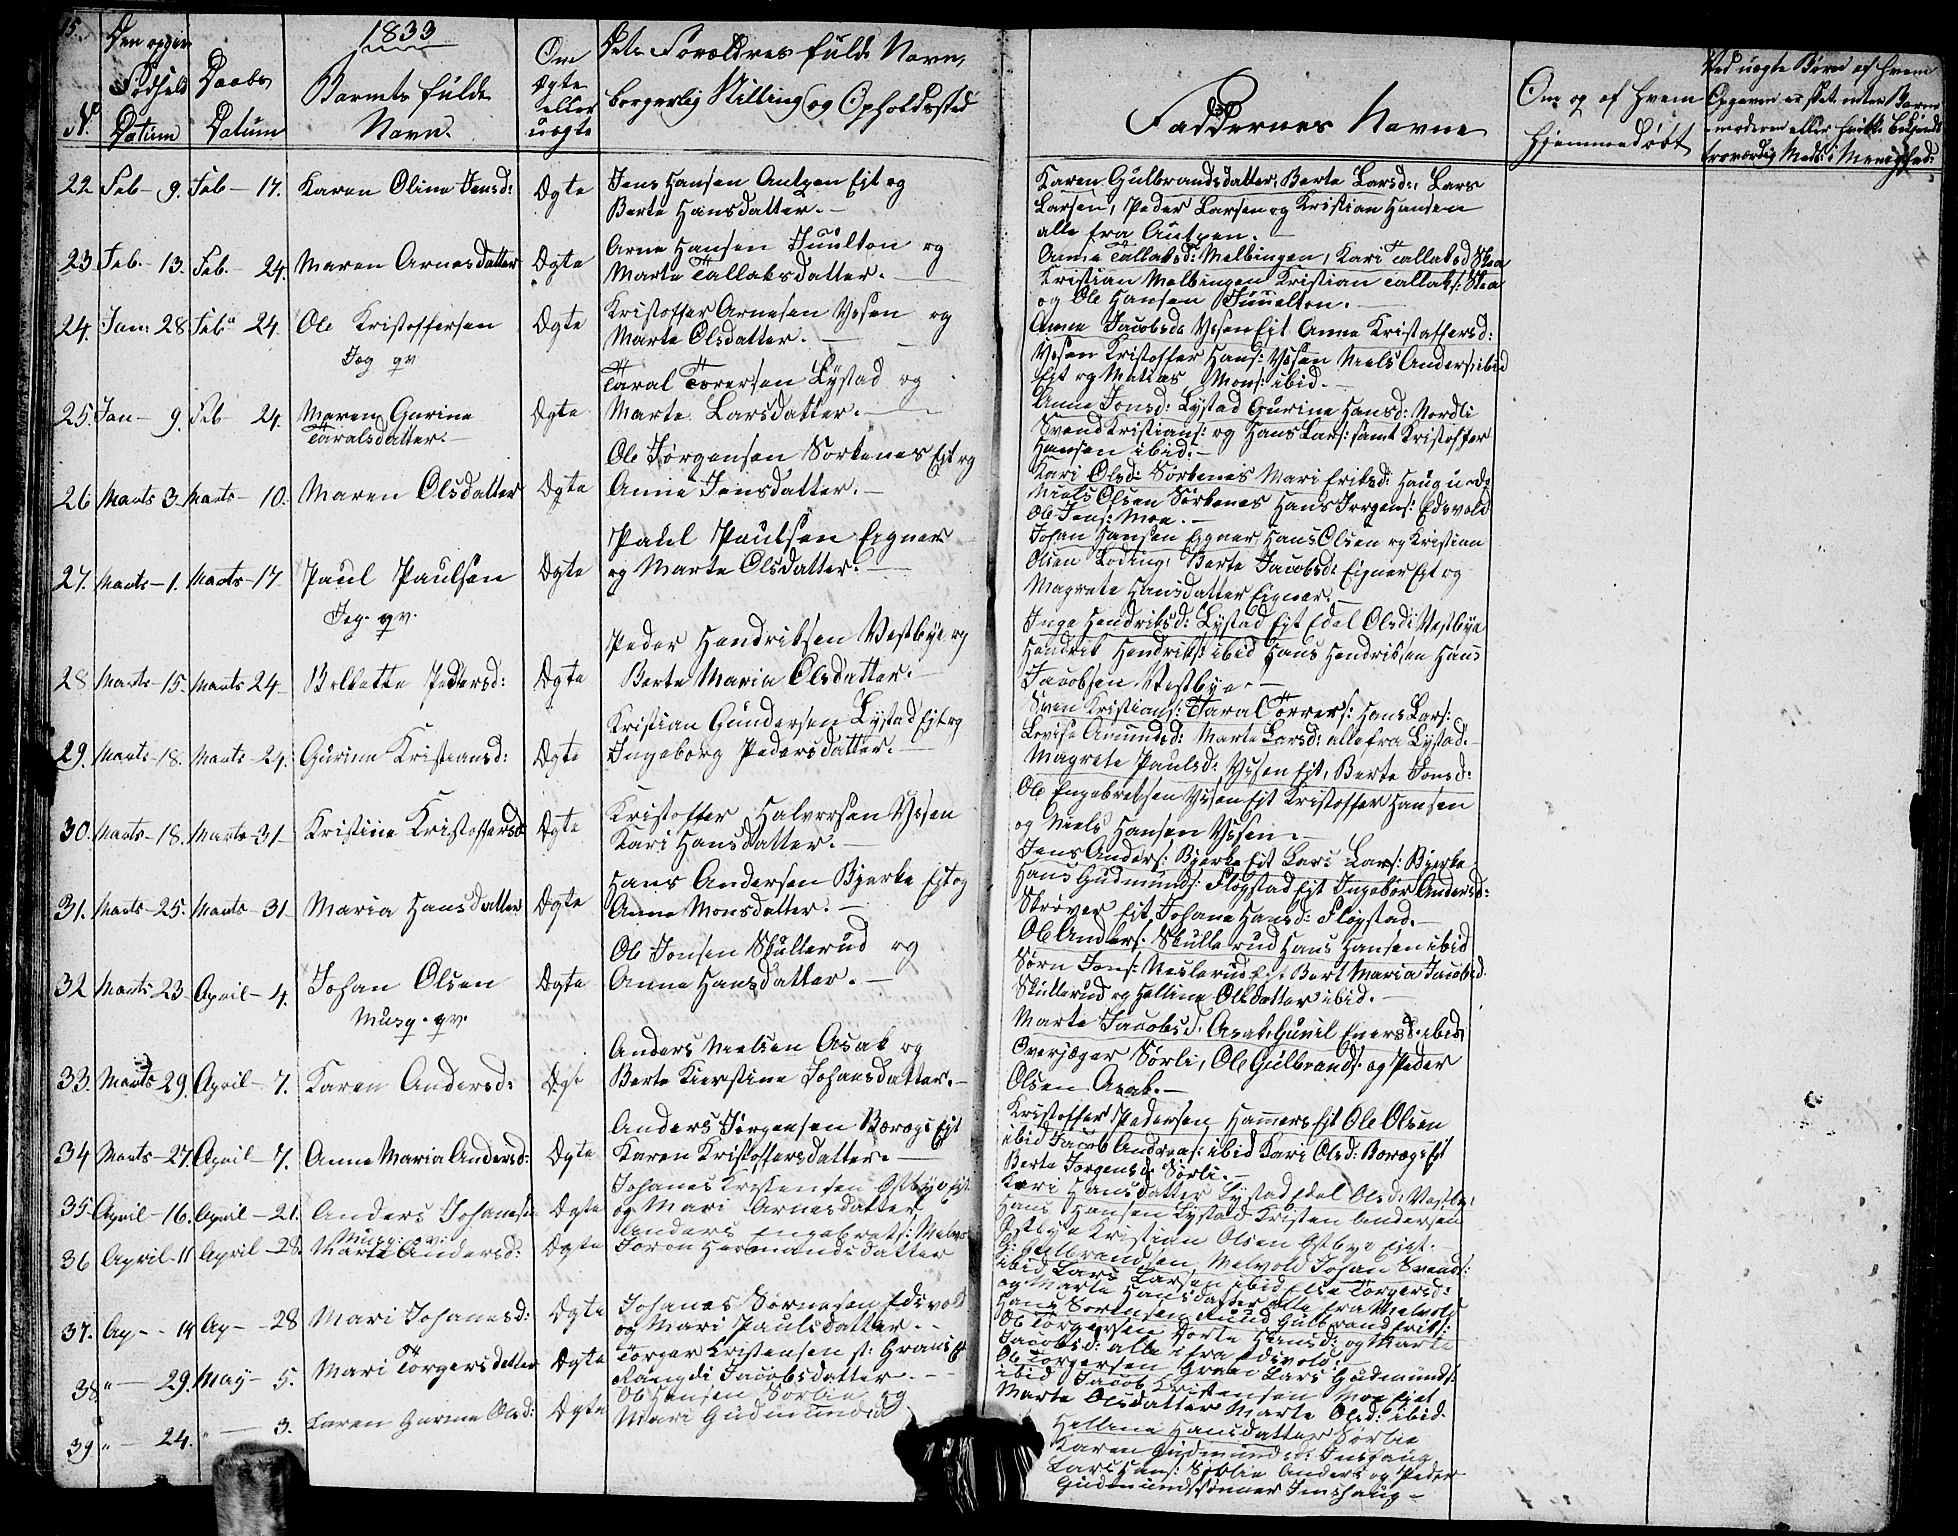 15.
1833
N.
Den opgivne Fødsels Datum
Daabs Datum
Barnets fulde Navn.
Om ægte eller uægte
Dets Forældres fulde Navn, borgerlig Stilling og Opholdssted
Faddernes Navne
Om og af hvem hjemmedøbt
22 Feb - 9. Feb - 17. Karen Oline Jensd: Ægte
Jens Hansen Eit og
Berte Hansdatter.
Karen Gulbrandsdatter, Berte Larsd:, Lars
Larsen, Peder Larsen og Kristian Hansen
alle fra
23 Feb. - 13. Feb. - 24. Maren Arnesdatter Ægte
Arne Hansen Juulton og
Marte Tallaksdatter.
Anne Tallaksd: Melbingen, Kari Tallaksd
Kristian Melbingen Kristian Tallaks:
og Ole Hansen Juuelton.
24. Jan: 28 Feb 24. Ole Kristoffersen Ægte
Jag qv
Kristoffer Arnesen Ysen og
Marte Olsdatter.
Anne Jacobsd: Ysen Eit Anne Kristoffersd:
Ysen Kristoffer Hans: Ysen Niels Anders: ibid
Eit og Matias Mons: ibid.
25. Jan - 9. Feb - 24. Maren Gurine Taralsdatter. Ægte
Taral Torersen Lystad og
Marte Larsdatter.
Anne Jonsd: Lystad Gurine Hansd: Nordli
Svend Kristians: og Hans Lars: samt Kristoffer
Hansen ibid.
26 Marts 3. Marts - 10. Maren Olsdatter Ægte
Ole Jørgensen Sorkenes Eit og
Anne Jensdatter.
Kari Olsd: Sørkenes Mari Eriksd: Haug
Niels Olsen Sørkenes Hans Jørgens: Edsvold
Ole Jens: Moe.
27. Marts - 1. Marts - 17. Paul Paulsen Ægte
Jag. qv.
Paul Paulsen Eigner
og Marte Olsdatter.
Johan Hansen Eigner Hans Olsen og Kristian
Olsen Loding, Berte Jacobsd: Eigner Eit og
Magrete Hansdatter Eigner.
28 Marts - 15. Marts 24 Bollette Pedersd: Ægte
Peder Hendriksen Vestbye og
Berte Maria Olsdatter.
Inge Hendriksd: Lystad Eit Edel Olsd: Vestbye
Hendrik Hendriks: ibid Hans Hendriksen Hans
Jacobsen Vestbye.
29. Marts - 18. Marts - 24. Gurine Kristiansd: Ægte
Kristian Gundersen Lystad Eit og
Ingeborg Pedersdatter.
Sven Kristians: Taral Torrers: Hans Lars:
Lovise Amundsd: Marte Larsd: alle fra Lystad.
30. Marts - 18. Marts - 31 Kristine Kristoffersd: Ægte
Kristoffer Halvorsen Ysen
Kari Hansdatter.
Magrete Paulsd: Ysen Eit, Berte Jonsd:
Ole Engebretsen Ysen Eit Kristoffer Hansen
og Niels Hansen Ysen.
31. Marts - 25. Marts - 31 Maria Hansdatter Ægte
Hans Andersen Bjerke Eit og
Anne Monsdatter.
Jens Anders: Bjerke Eit Lars: Bjerke
Hans Gudmunds: Flogstad Eit Ingebor Andersd:
Skrøver Eit, Johane Hansd: Flogstad.
32 Marts 23. April - 4. Johan Olsen Ægte
Musq. qv.
Ole Jonsen Skullerud og
Anne Hansdatter.
Ole Anders: Skullerud Hans Hansen ibid
Sørn Jons: Neslerud Bert Maria Jacobsd.
Skullerud og Helline Olsdatter ibid.
33. Marts 29. April - 7. Karen Andersd: Ægt
Anders Nielsen Asak og
Berte Kierstine Johansdatter.
Marte Jacobsd. Asak, Gunil Enersd: ibid
Overjæger Sørli, Ole Gulbrands: og Peder
Olsen Asak.
34 Marts - 27. April - 7. Anne Maria Andersd: Ægte
Anders Jørgensen Boregs Eit
Karen Kristoffersdatter.
Kristoffer Pedersen Hammers Eit Ole Olsen
ibid Jacob Andreas: ibid Kari Olsd: Boregs Eit
Berte Jørgensd: Sørli.
35 April - 16. April - 21. Anders Johanesen Ægte
Musq: qv:
Johanes Kristensen Ostbye Eit
og Mari Arnesdatter
Kari Hansdatter Lystad Edel Olsd: Vestby:
Hans Hansen Lystad Kristen Andersen
Ostbye Kristian Olsen Ostbye Eigt.
36 April - 11 April - 28. Marte Andersd: Ægte
Anders Engebrets: Melvold
Joron Hermandsdatter
G: Gulbrandsen Melvold Johan Svends:
ibid Lars Larsen ibid Else Torgersd:
og Marte Hansdatter alle fra Melvold
37. Ap - 14 Ap - 28 Mari Johanesd: Ægte
Johanes Sørnesen Edsvold
og Mari Paulsdatter.
Hans Sørensen Gulbrand Eriks:
Ole Torgersen Dorte Hansd: og Marte
Jacobsd: alle fra Edsvold.
38 " - 29. May - 5. Mari Torgersdatter Ægte
Torger Kristensen Grans E
Rangdi Jacobsdatter.
Ole Torgersen Gran Lars Gudmunds:
ibid Jacob Kristensen Moe Eigt
Marte Olsdatter Marte Olsd: ibid.
39 " - 24. " - 3. Karen Gurine Olsd: Ægte
Ole Hansen Sørlie og
Mari Gudmundsd
Helline Hansdatter Sørlie
Karen Gudmundsd: Jnshaug
Lars Hans: Sørlie Anders og Peder
Gudmundssønner Jnshaug